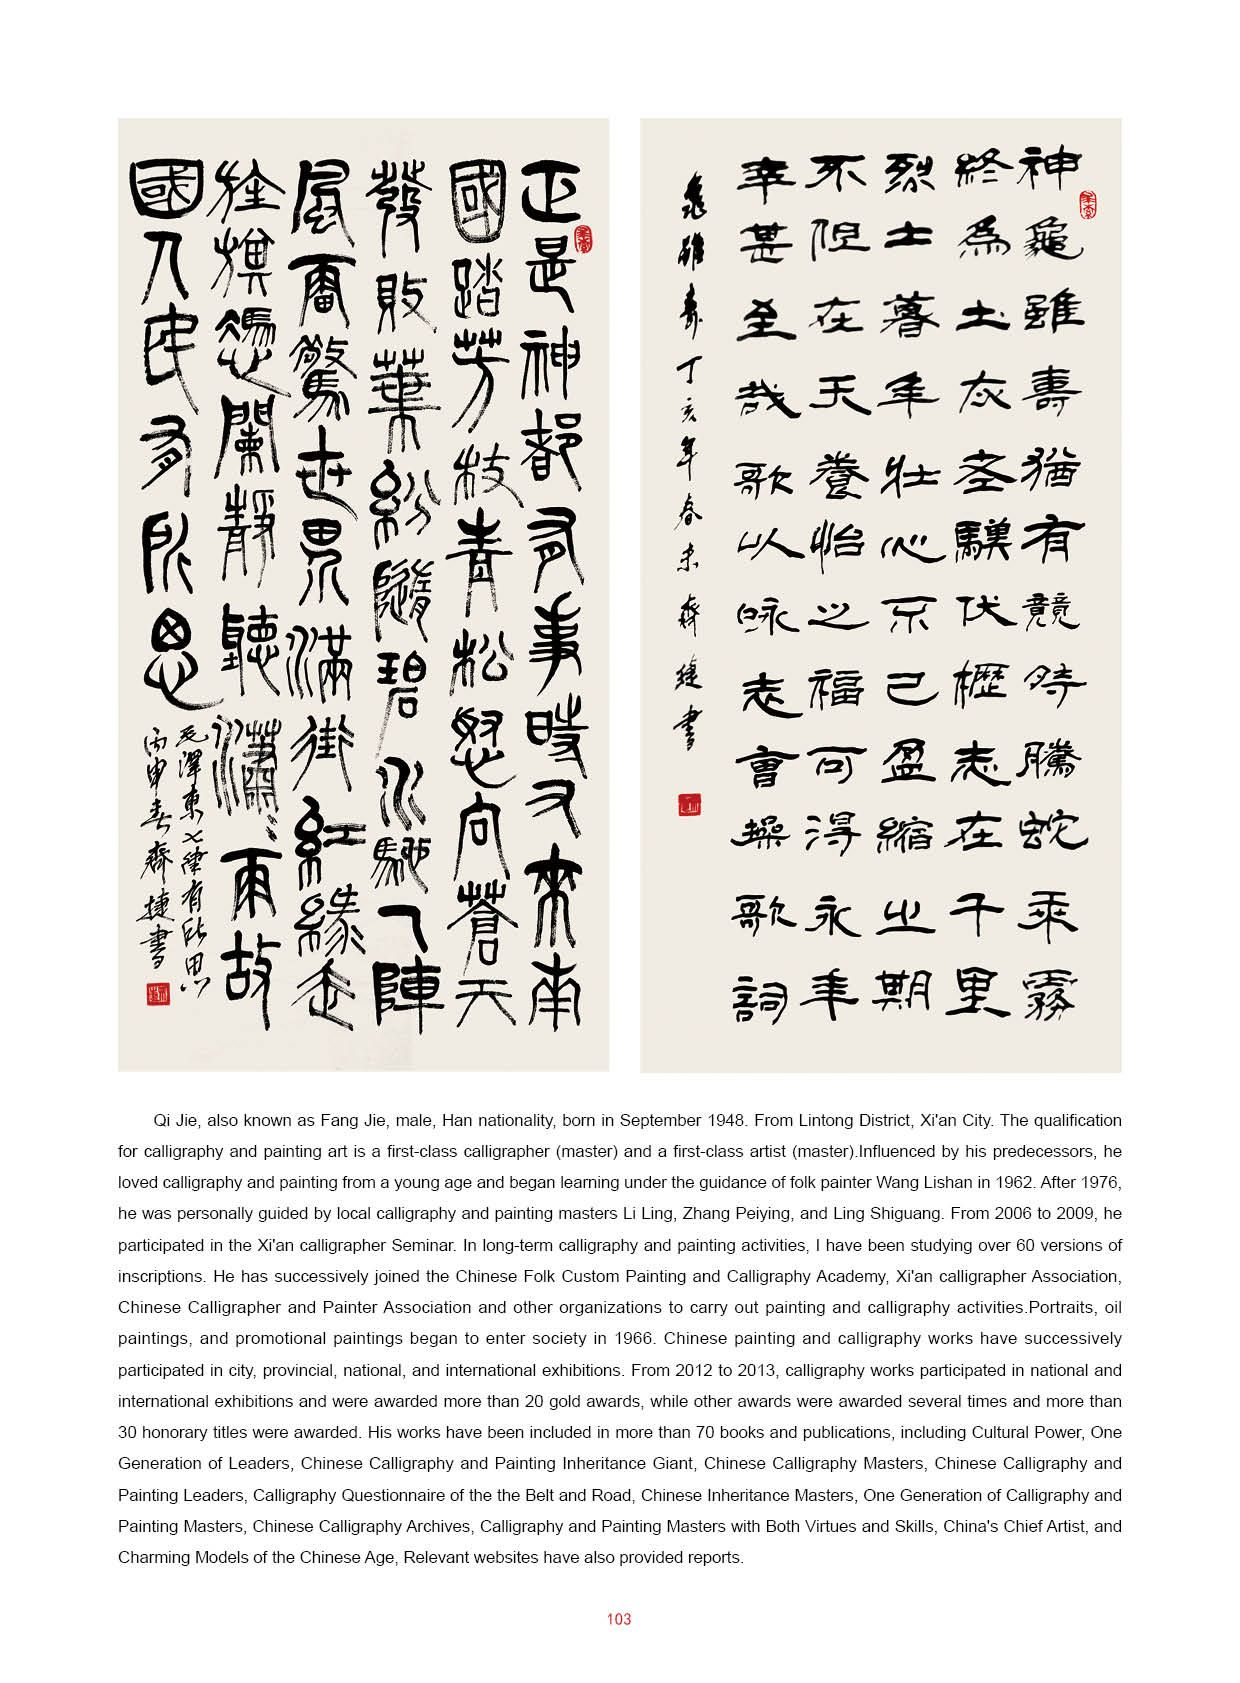 正是神都有事時又來南
國踏芳枝青松怒向蒼天
發敗葉紛隨碧水馳一陣
風雷驚世界滿街紅綠走
旌旗憑闌靜聽瀟々雨故
國人民有所思
毛澤東七律有所思
丙申春齊捷書
神龜雖壽猶有競時騰蛇乘霧
終為土灰老驥伏櫪志在千里
烈士暮年壯心不已盈縮之期
不但在天養怡之福可得永年
幸甚至哉歌以詠志會操歌詞
龜雖壽丁亥年春末齊捷書
Qi Jie, also known as Fang Jie, male, Han nationality, born in September 1948. From Lintong District, Xi'an City. The qualification
for calligraphy and painting art is a first-class calligrapher (master) and a first-class artist (master).Influenced by his predecessors, he
loved calligraphy and painting from a young age and began learning under the guidance of folk painter Wang Lishan in 1962. After 1976,
he was personally guided by local calligraphy and painting masters Li Ling, Zhang Peiying, and Ling Shiguang. From 2006 to 2009, he
participated in the Xi'an calligrapher Seminar. In long-term calligraphy and painting activities, I have been studying over 60 versions of
inscriptions. He has successively joined the Chinese Folk Custom Painting and Calligraphy Academy, Xi'an calligrapher Association,
Chinese Calligrapher and Painter Association and other organizations to carry out painting and calligraphy activities.Portraits, oil
paintings, and promotional paintings began to enter society in 1966. Chinese painting and calligraphy works have successively
participated in city, provincial, national, and international exhibitions. From 2012 to 2013, calligraphy works participated in national and
international exhibitions and were awarded more than 20 gold awards, while other awards were awarded several times and more than
30 honorary titles were awarded. His works have been included in more than 70 books and publications, including Cultural Power, One
Generation of Leaders, Chinese Calligraphy and Painting Inheritance Giant, Chinese Calligraphy Masters, Chinese Calligraphy and
Painting Leaders, Calligraphy Questionnaire of the the Belt and Road, Chinese Inheritance Masters, One Generation of Calligraphy and
Painting Masters, Chinese Calligraphy Archives, Calligraphy and Painting Masters with Both Virtues and Skills, China's Chief Artist, and
Charming Models of the Chinese Age, Relevant websites have also provided reports.
103